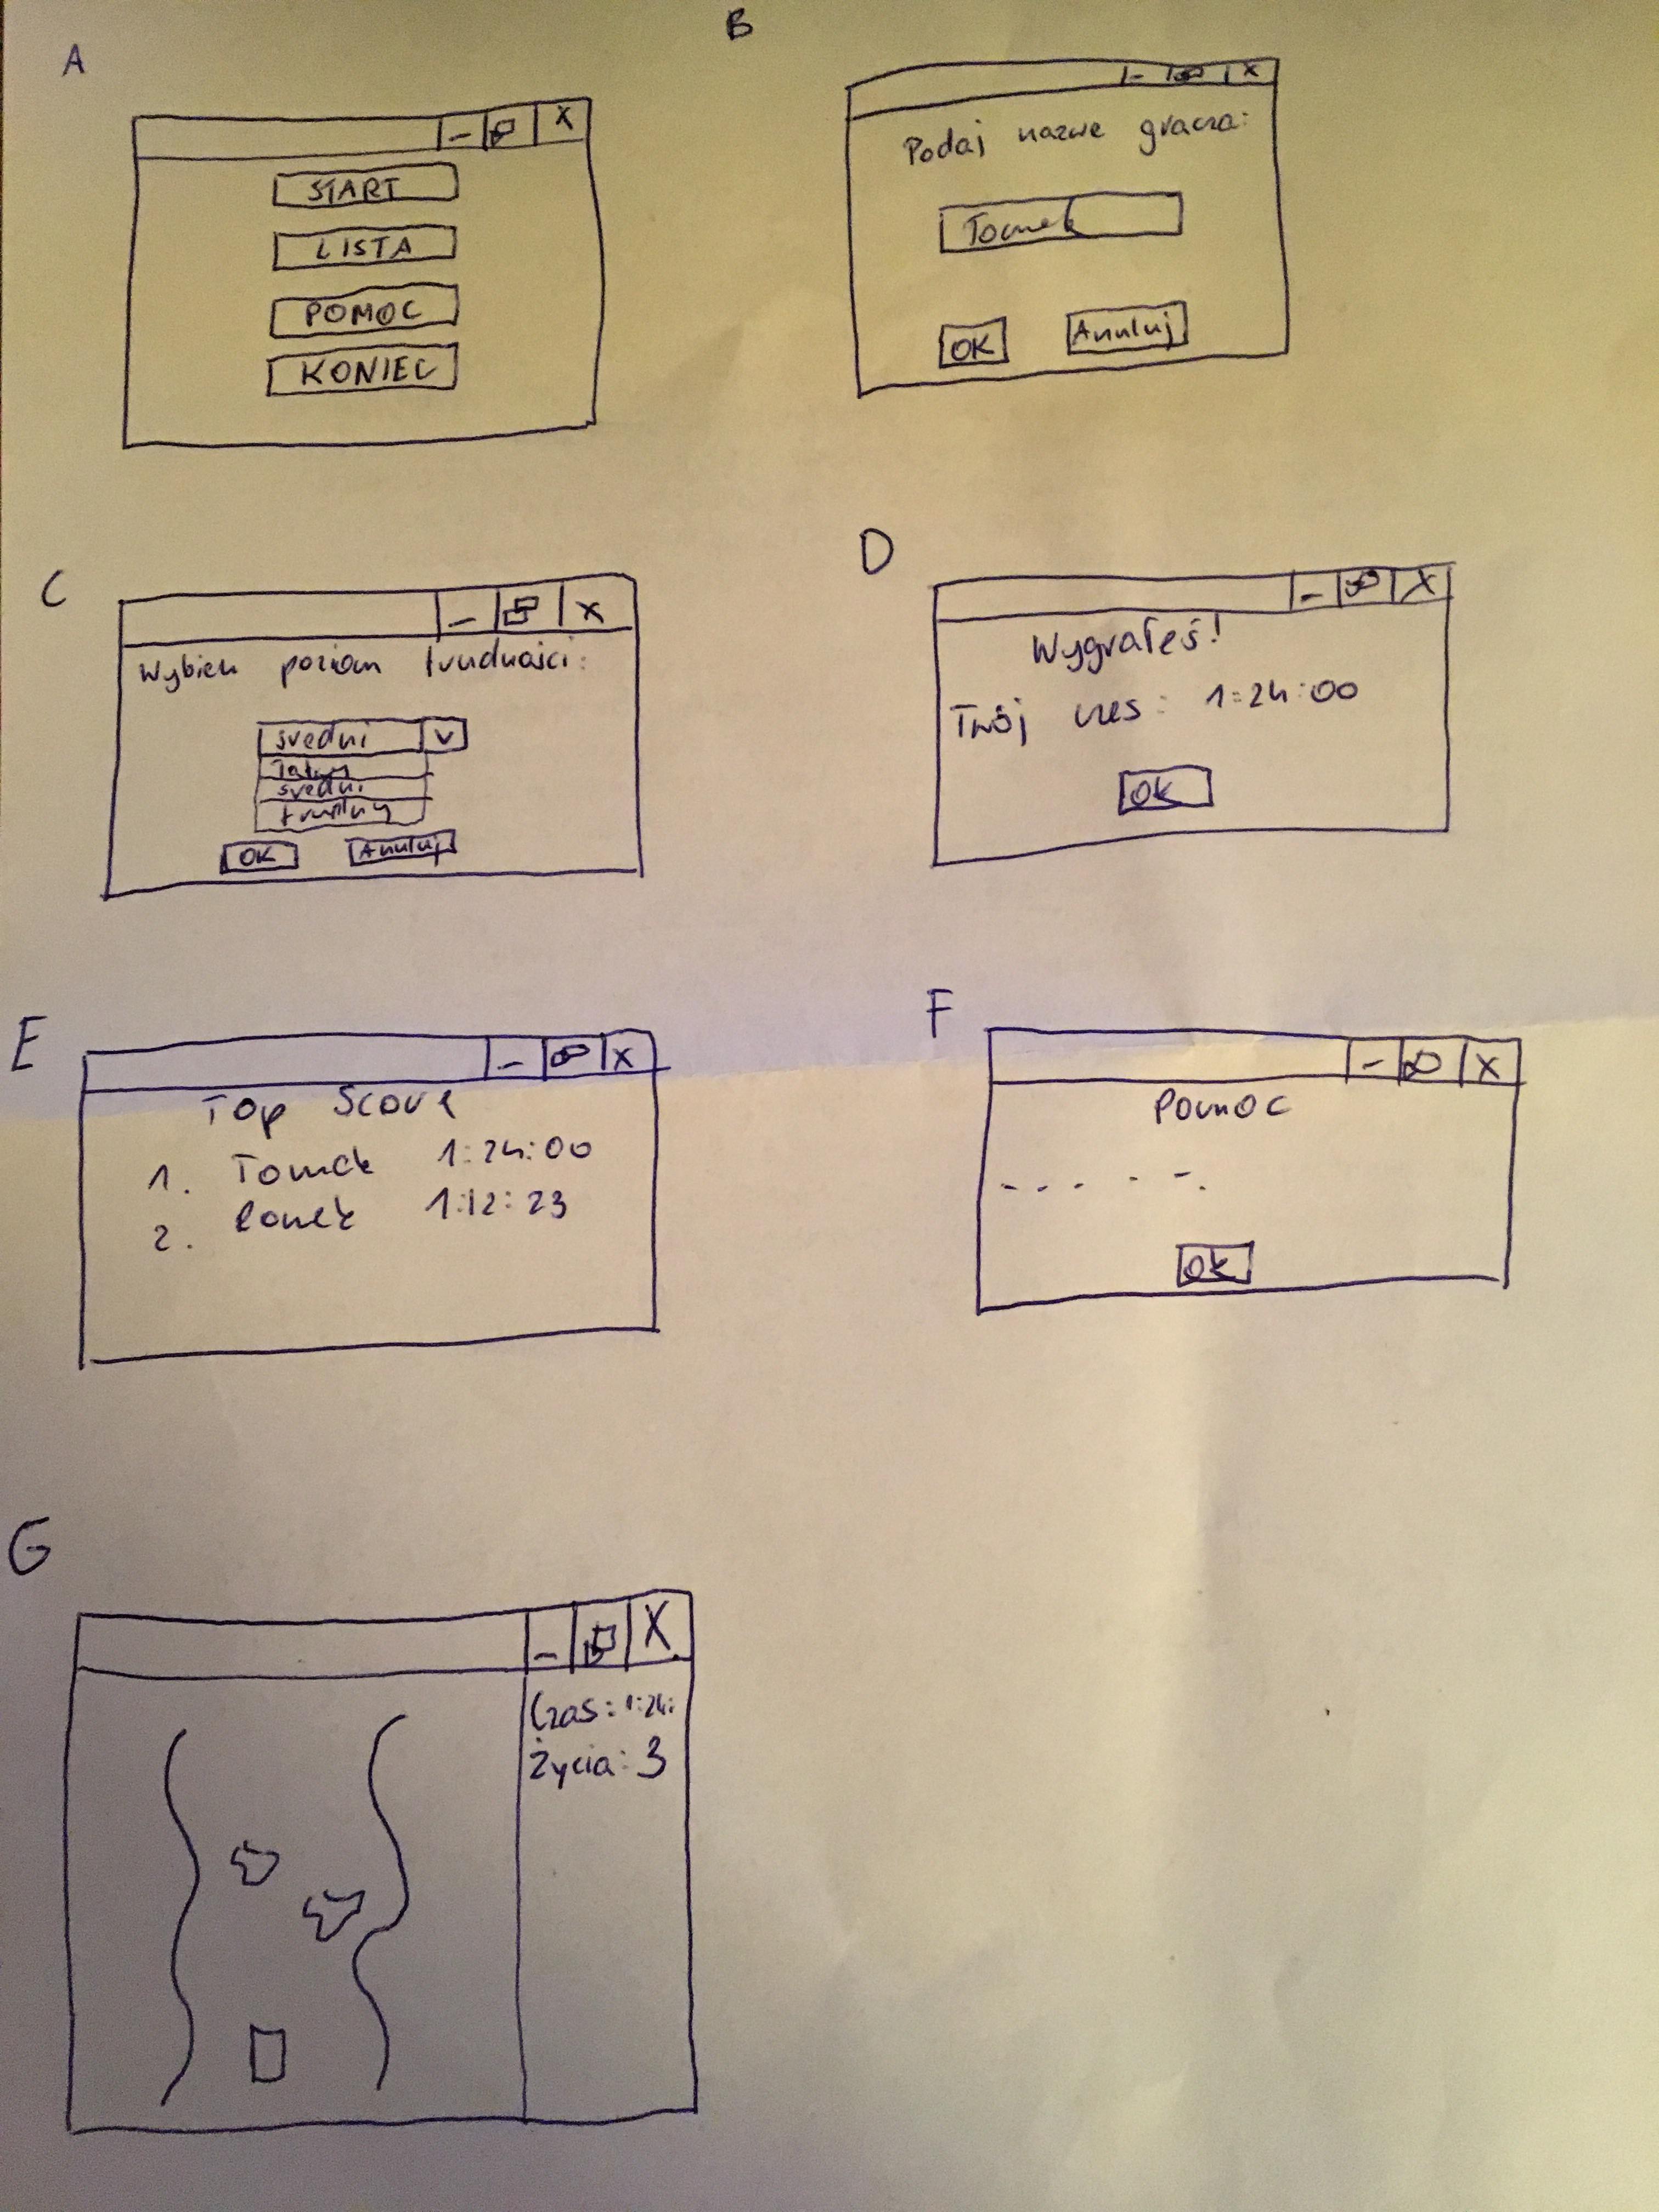 A
START
LISTA
POMOC
KONIEC
B
Podaj nazwe gracza:
Tomek
OK Anuluj
C
Wybierz poziom trudności:
średni v
łatwy
średni
trudny
OK Anuluj
D
Wygrałeś!
Twój czas: 1:24:00
OK
E
Top Score
1. Tomek 1:24:00
2. 1:12:23
F
Pomoc
OK
G
Czas: 1:24:
Życia: 3